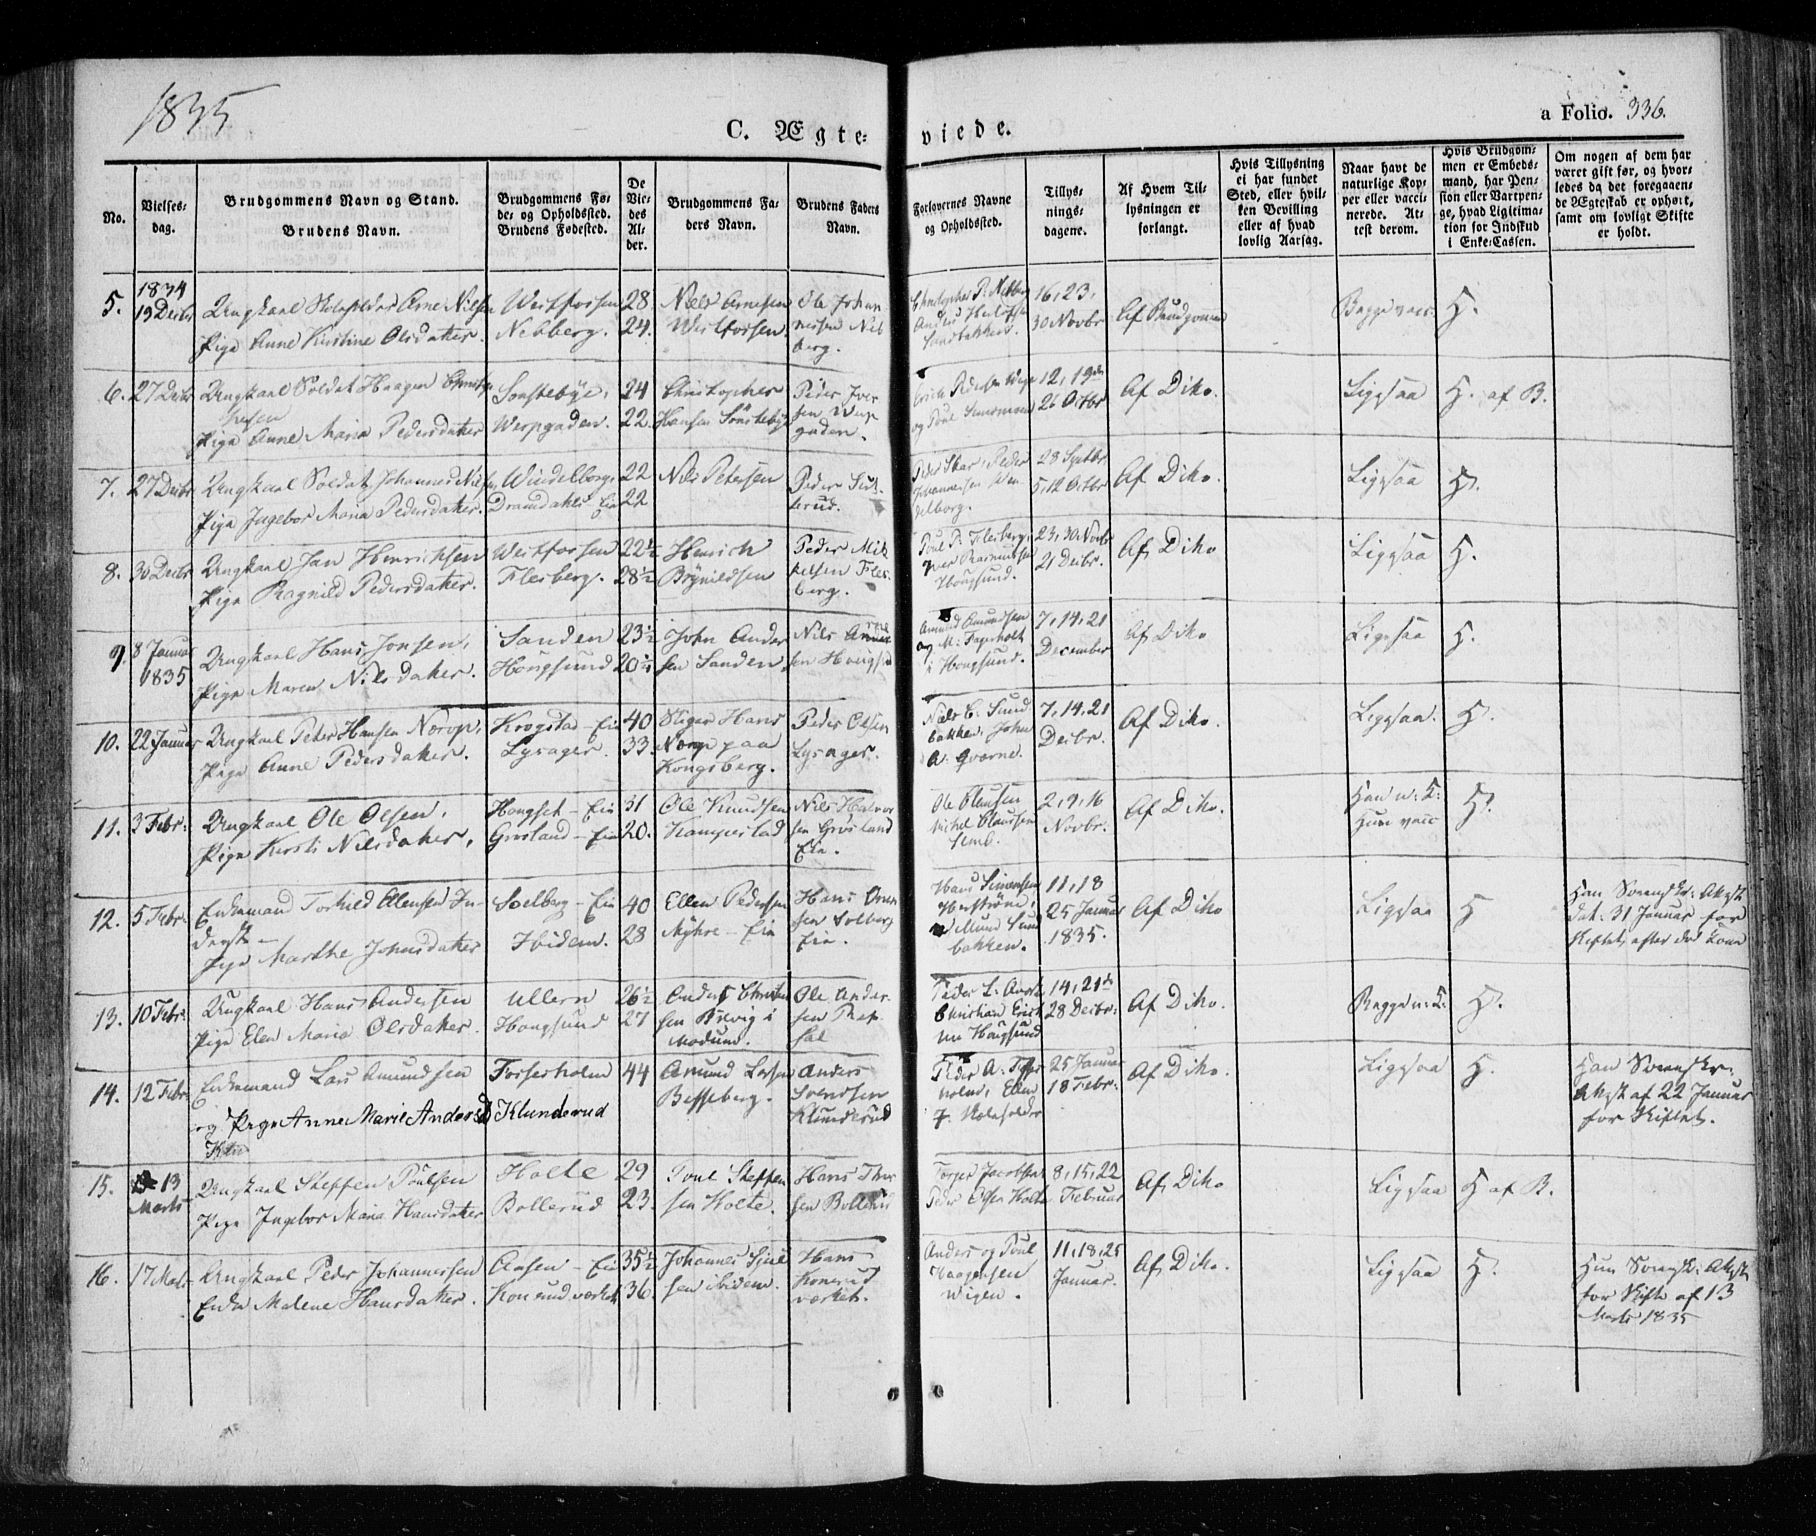 1835
C. Ægte-
viede.
a Folio. 336.
No.
Vielses-
dag.
Brudgommens Navn og Stand.
Brudens Navn.
Brudgommens Fø-
de- og Opholdssted.
Brudens Fødested.
De
Vie-
des
Al-
der.
Brudgommens Fa-
ders Navn.
Brudens Faders
Navn.
Forlovernes Navne
og Opholdssted.
Tillys-
nings-
dagene.
Af Hvem Til-
lysningen er
forlangt.
Hvis Tillysning
ei har fundet
Sted, eller hvil-
ken Bevilling
eller af hvad
lovlig Aarsag.
Naar havt de
naturlige Kop-
per eller vacci-
nerede. At-
test derom.
Hvis Brudgom-
men er Embeds-
mand, har Pen-
sion eller Vartpen-
ge, hvad Ligitima-
tion for Indskud
i Enke-Cassen.
Om nogen af dem har
været gift før, og hvor-
ledes da det foregaaen-
de Ægteskab er ophørt,
samt om lovligt Skifte
er holdt.
5.
1834
19 Decbr
Ungkarl Arne Nilsen
Pige Anne Kirstine Olsdatter.
Westfossen
Nebberg.
28
24.
Niels Arnesen
Westfossen.
Ole Johan
nesen Neb
berg.
Christopher P. Nebberg
Anders
16, 23,
30 Novbr
Af Brudgommen
Begge vacc.
H.
6.
27 Decbr
Ungkarl Soldat Haagen Christop
hersen
Pige Anne Maria Pedersdatter
Sønstebye,
Werpgaden.
24
22.
Christopher
Hansen Sønstebye
Peder Iver
sen Werp
gaden.
Erich Pedersen
og Poul
12, 19de
26 Octbr
Af Dito.
Ligesaa
H. af B.
7.
27 Decbr
Ungkarl Soldat Johannes Niels
Pige Ingebor Maria Pedersdatter.
Windelborg,
Dramdahls Eie
22
22
Nils Petersen
Peder
Peder Skar, Peder
Johannesen Win
delborg.
28 Septbr.
5, 12 Octbr
Af Dito.
Ligesaa
H.
8.
30 Decbr
Ungkarl Jan Henrichsen
Pige Ragnild Pedersdatter.
Westfossen
Flesberg.
22½
28½
Henrich
Brynildsen
Peder Mik
kelsen Fles-
berg.
Poul P. Flesberg,
Iver Rasmussen
Hougsund.
23, 30 Novbr
21 Decbr.
Af Dito
Ligesaa
H.
9.
8 Januar
1835
Ungkarl Hans Jonsen,
Pige Maren Nilsdatter.
Sanden
Hougsund
23½
20½
John Ander
sen Sanden.
Nils
sen Hougs
Amund Amundsen
og M. Fagerholt
i Hougsund.
7, 14, 21
December
Af Dito
Ligesaa
H.
10.
22 Januar
Ungkarl Peter Hansen Norop,
Pige Anne Pedersdatter.
Krogstad-Eie
Lysager.
40
33.
Steger Hans
Norop paa
Kongsberg.
Peder Olsen
Lysager.
Niels C. Sund
bakken, John
A. Qværne.
7, 14, 21
Decbr.
Af Dito.
Ligesaa.
H.
11.
3 Febr.
Ungkarl Ole Olsen,
Pige Kirsti Nilsdatter,
Hougset-Eie
Grøsland-Eie
31
20.
Ole Knudsen
Kamperstad
Nils Halvor
sen Grøsland
Eie.
Ole Clausen
Mikel Clausen
Semb.
2, 9, 16
Novbr.
Af Dito
Han n: K:
Hun vacc
H.
12.
5 Febr.
Enkemand Torkild Ellensen In-
derst-
Pige Marthe Johnsdatter
Soelberg-Eie
Ibidem.
40
28
Ellen Pedersen
Myhre-Eie
Hans
sen Solberg
Eie.
Hans Simensen
Herstrøm,
Sund
bakken.
11, 18
25 Januar
1835.
Af Dito
Ligesaa
H
Han Sorenskr: Attest
dat: 31 Januar for
Skiftet efter død Kone
13.
10 Febr.
Ungkarl Hans Andersen
Pige Elen Maria Olsdatter.
Ullern
Hougsund
26½
27
Anders Christen
sen i
Modum.
Ole Ander
sen
Peder L.
Christian
Hougsund
14, 21de
28 Decbr.
Af Dito.
Begge n: K:
H.
14.
12 Febr
Enkemand Lars Amundsen
og Pige Anne Marie Andersd
Fosserholm
Klunderud
44
Amund Larsen
Besseberg.
Anders
Svendsen
Klunderud
Peder A. Fosser
holm, Elen
25 Januar
18 Febr.
Af Dito.
Ligesaa
H.
Han Sorenskr:
Attst af 22 Januar
for Skiftet.
15.
13
Marts
Ungkarl Steffen Poulsen
Pige Ingebor Maria Hansdatter
Holte
Bollerud
29
23.
Poul Steffen
sen Holte.
Hans Thor
sen Bollerud
Torger Jacobsen
Peder Holte
8, 15, 22
Februar
Af Dito
Ligesaa
H af B.
16.
17 Marts
Ungkarl Peder Johannesen
Enke Malene Hansdatter.
Aasen-Eie
Konerudværket
35½
36.
Johannes
sen ibidem.
Hans
Konerud
værket.
Anders og Poul
Haagensen
Wigen.
11, 18, 25
Januar.
Af Dito.
Ligesaa
H.
Hun Sorensk: Attst
for Skifte af 13
Marts 1835